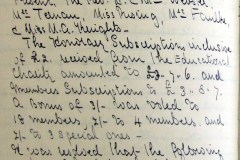 Present, The Rev. J. Webster
Mr Tennan, Miss Huskey, Mr Faulke,
& Miss M.A. Knights.
The Honorary Subscriptions inclusive
of £2 received from the Educational
Charity amounted to £9.7.6. and
Members Subscriptions to £3".8.7.
A bonus of 3/- was voted to
18 members, 2/- to 4 members, and
2/- to 3 special ones -
It was resolved that the following